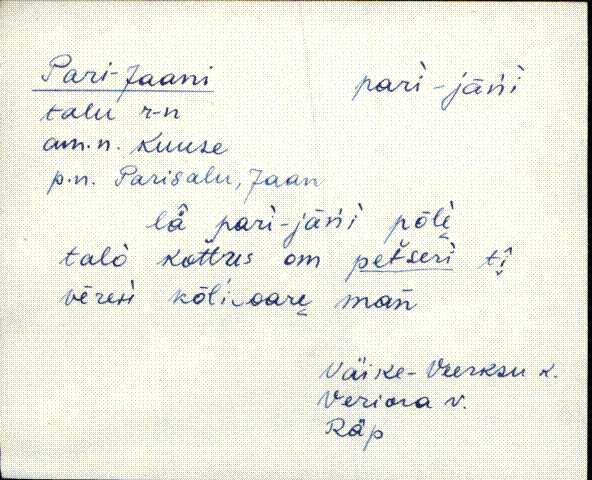 Pari-Jaani pari̇̀-jāńi
talu r-n
am.n. Kuuse
p.n. Parisalu, Jaan
lā̂ parì-jāńì pōlè̬
talò koťťus om petšerì tî̬
vēresì kōli oare̬ mań
Väike-Veerksu k.
Veriora v.
Räp